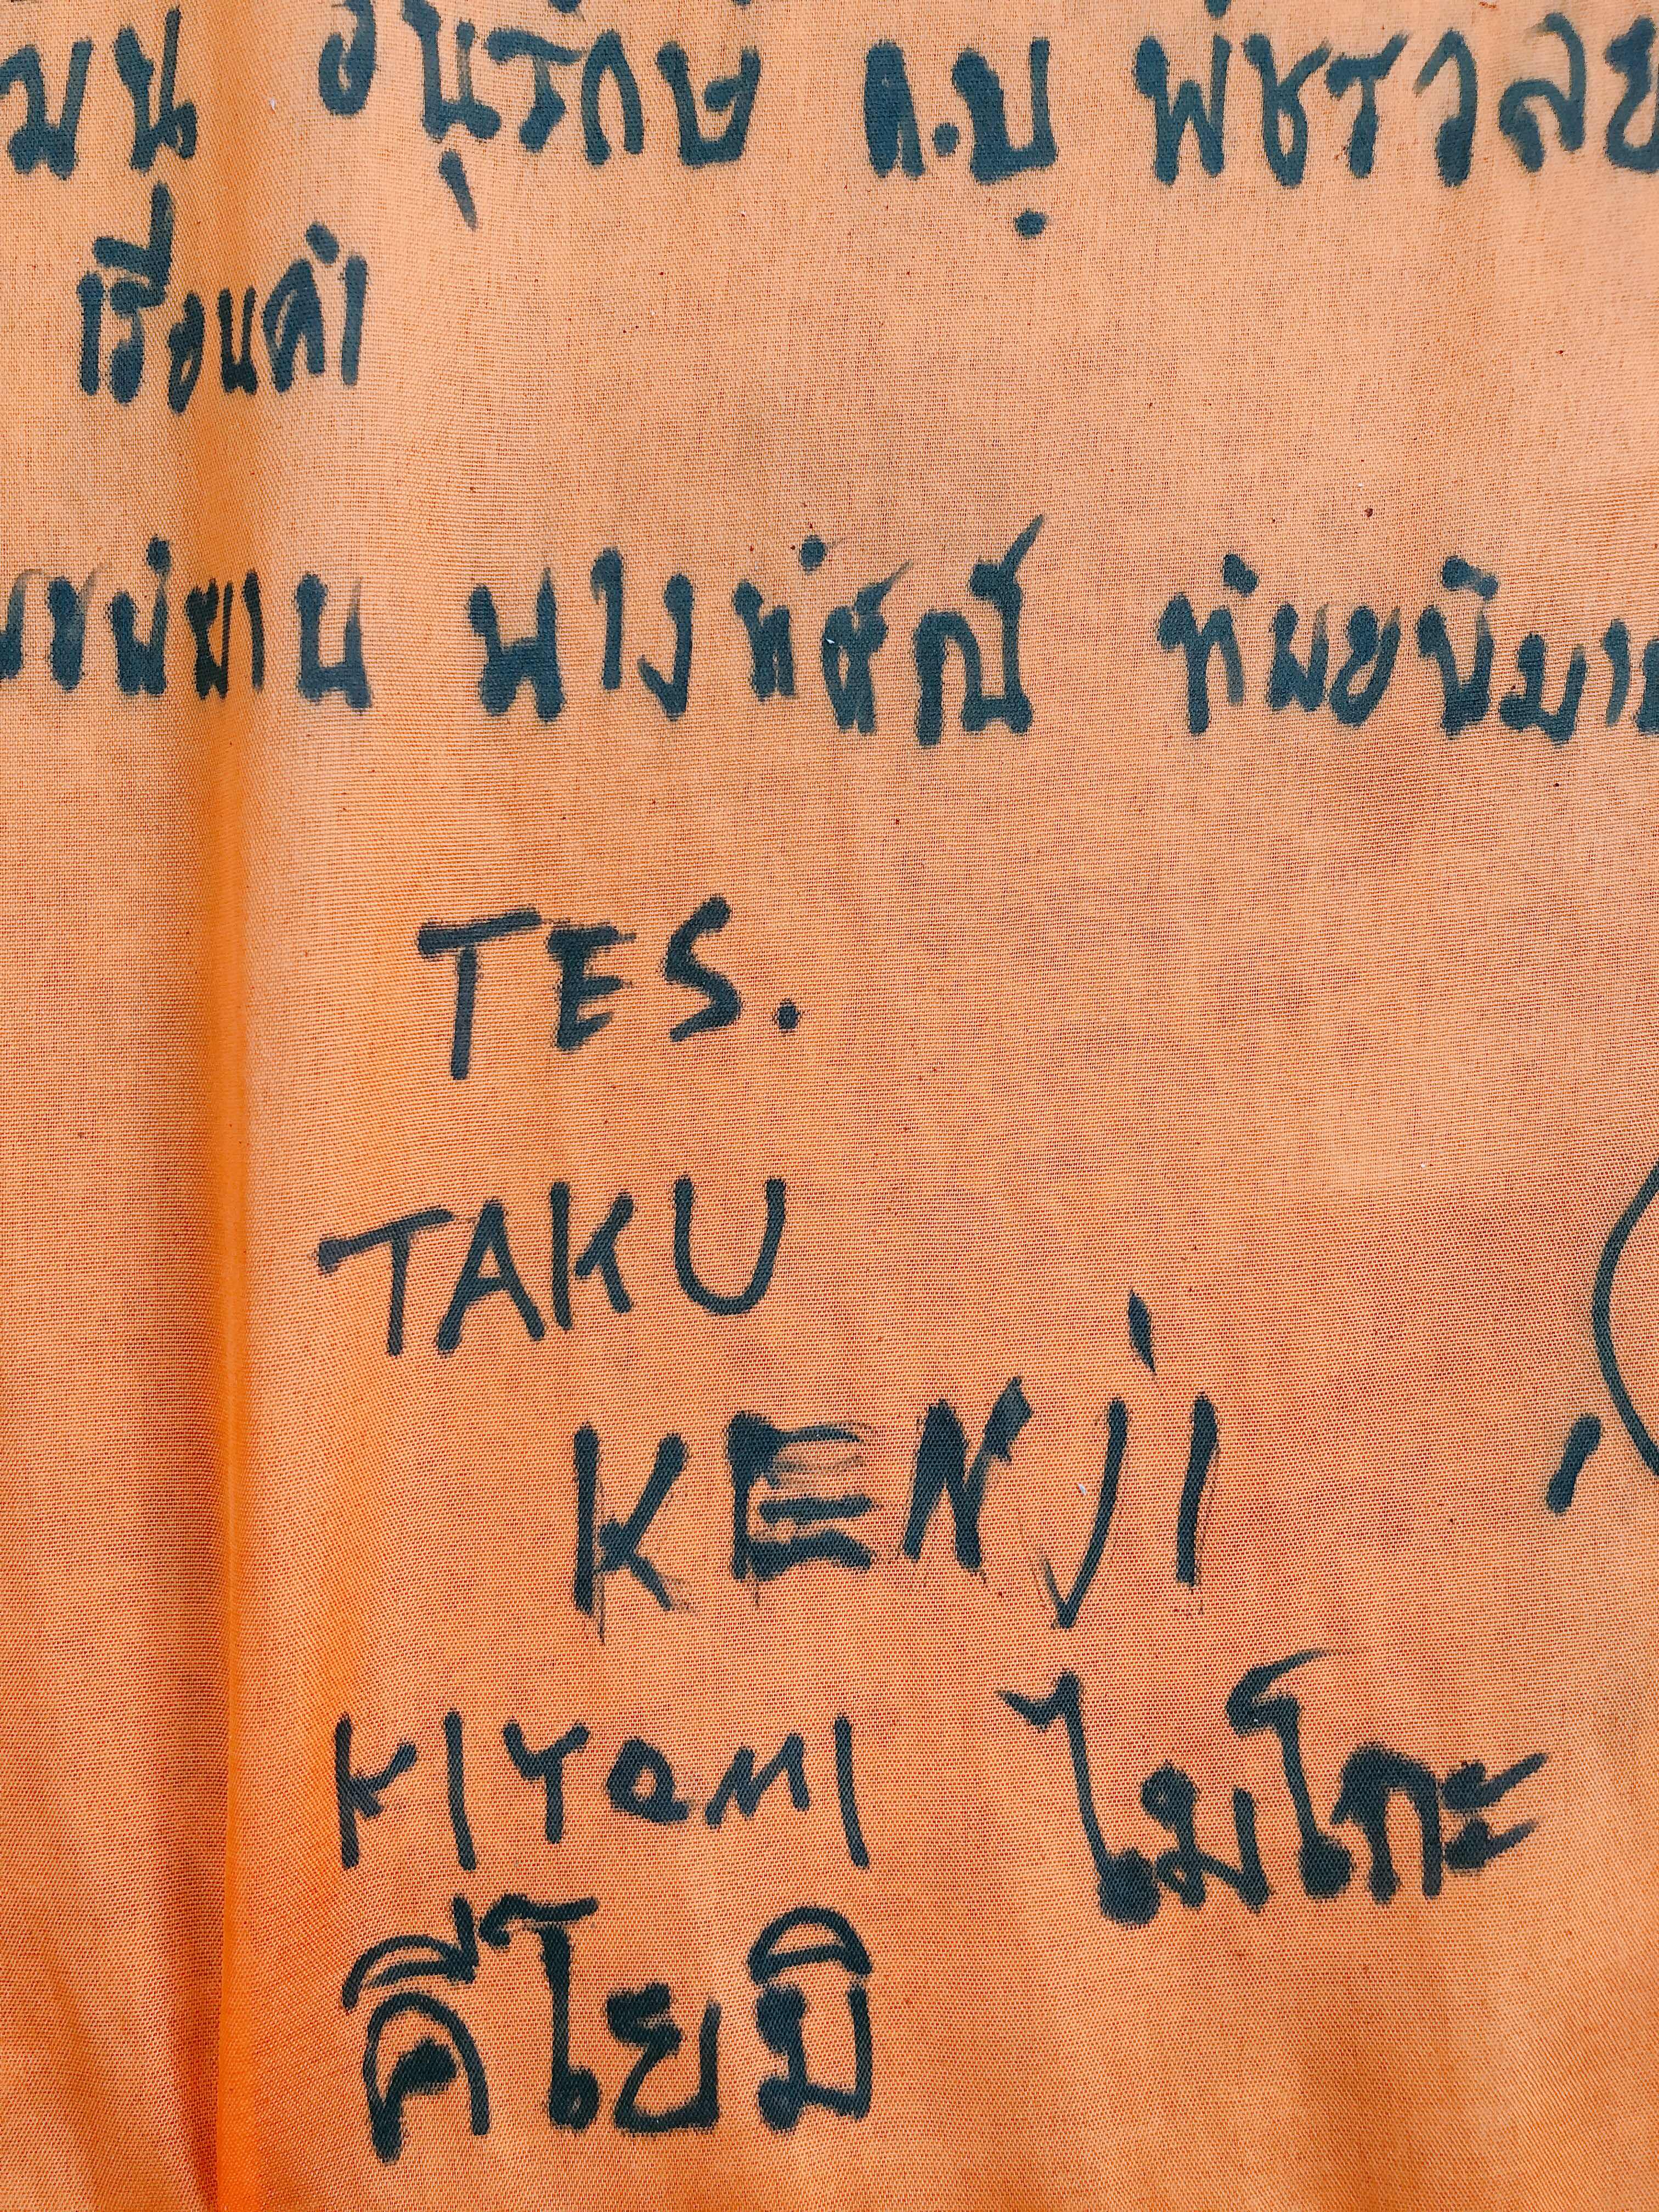 อนุรักษ์ ด.ญ พัชรวลย
เรือนคำ
นางทัศณีย์ ทิพย์พิมาน
TES.
TAKU
KENji
KIYOMI ไมโกะ
คิโยมิ